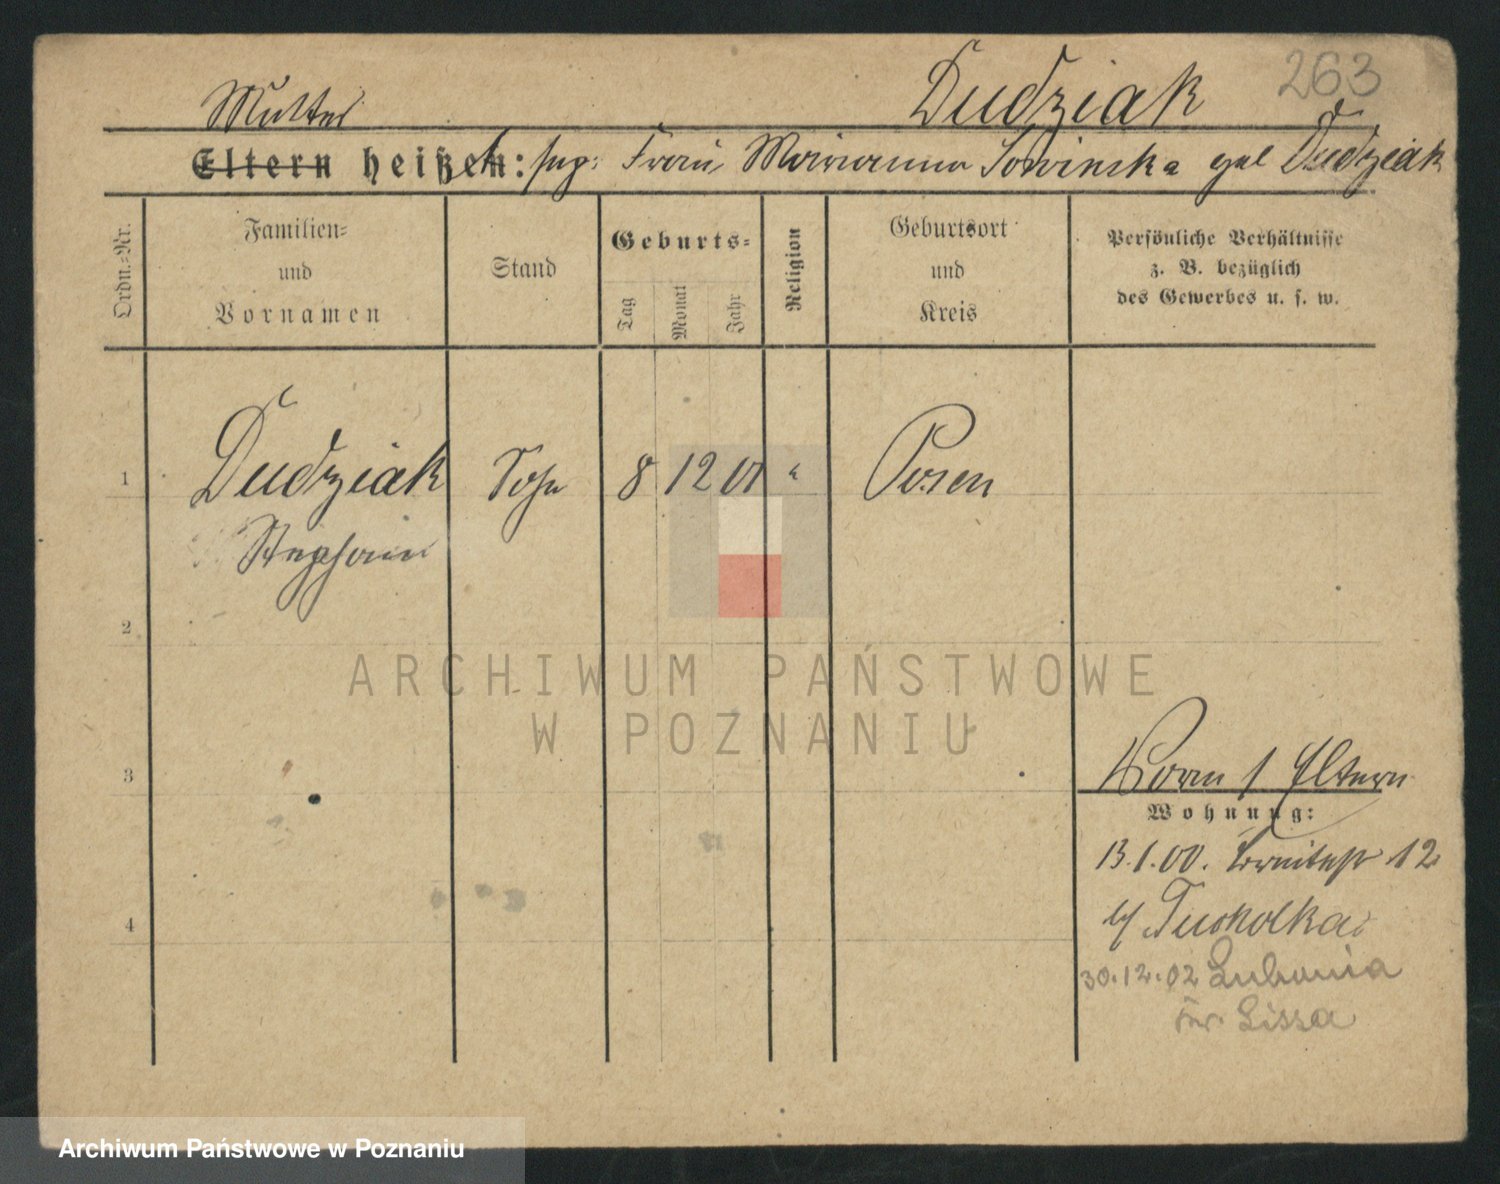 263
Dudziak
Mutter
Eltern heißen: Frau Marianna Sowinska geb Dudziak
Ordn.-Nr.
Familien-
und
Vornamen
Stand
Geburts-
Tag
Monat
Jahr
Religion
Geburtsort
und
Kreis
Persönliche Verhältnisse
z. B. bezüglich
des Gewerbes u. s. w.
1
Dudziak Sohn 8 12 Posen
Stephan
2
ARCHIWUM PAŃSTWOWE
W POZNANIU
3
Eltern
Wohnung:
13.1.00. 12
Tucholka
4
30.12.02 Lubonia
Kr. Lissa
Archiwum Państwowe w Poznaniu